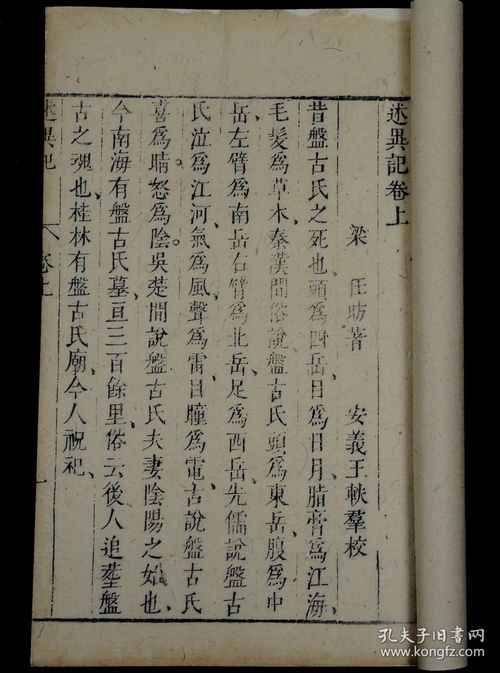 述異記卷上
梁　任昉著　安義王軼羣校
昔盤古氏之死也頭爲四岳目爲日月脂膏爲江海
毛髮爲草木秦漢間俗說盤古氏頭爲東岳腹爲中
岳左臂爲南岳右臂爲北岳足爲西岳先儒說盤古
氏泣爲江河氣爲風聲爲雷目瞳爲電古說盤古氏
喜爲晴怒爲陰吳楚間說盤古氏夫妻陰陽之始也
今南海有盤古氏墓亘三百餘里俗云後人追塟盤
古之魂也桂林有盤古氏廟今人祝祀
述異記　卷上　一
孔夫子旧書网
www.kongfz.com